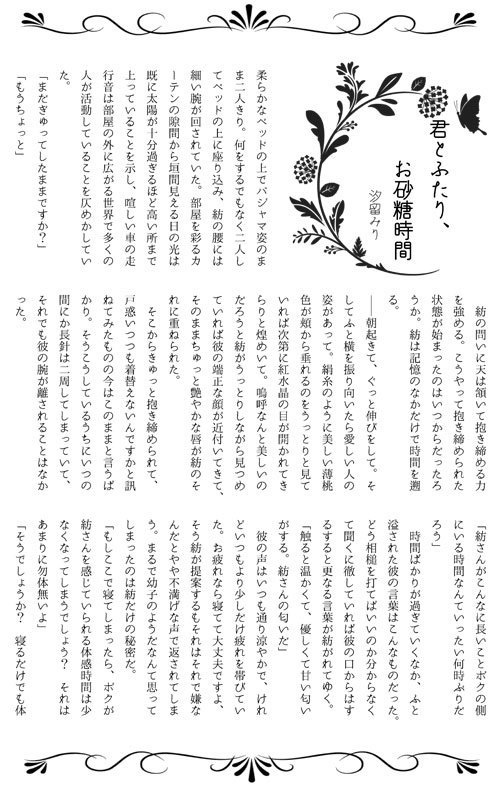 君とふたり、
お砂糖時間
汐留みり
柔らかなベッドの上でパジャマ姿のま
ま二人きり。何をするでもなく二人し
てベッドの上に座り込み、紡の腰には
細い腕が回されていた。部屋を彩るカ
ーテンの隙間から垣間見える日の光は
既に太陽が十分過ぎるほど高い所まで
上っていることを示し、喧しい車の走
行音は部屋の外に広がる世界で多くの
人が活動していることを仄めかしてい
た。
「まだぎゅってしたままですか？」
「もうちょっと」
紡の問いに天は頷いて抱き締める力
を強める。こうやって抱き締められた
状態が始まったのはいつからだったろ
うか。紡は記憶のなかだけで時間を遡
る。
――朝起きて、ぐっと伸びをして。そ
してふと横を振り向いたら愛しい人の
姿があって。絹糸のように美しい薄桃
色が頬から垂れるのをうっとりと見て
いれば次第に紅水晶の目が開かれてき
らりと煌めいて。嗚呼なんと美しいの
だろうと紡がうっとりしながら見つめ
ていれば彼の端正な顔が近付いてきて、
そのままちゅっと艶やかな唇が紡のそ
れに重ねられた。
そこからきゅっと抱き締められて、
戸惑いつつも着替えないんですかと訊
ねてみたものの今はこのままと言うば
かり。そうこうしているうちにいつの
間にか長針は二周してしまっていて、
それでも彼の腕が離されることはなか
った。
「紡さんがこんなに長いことボクの側
にいる時間なんていったい何時ぶりだ
ろう」
時間ばかりが過ぎていくなか、ふと
溢された彼の言葉はこんなものだった。
どう相槌を打てばいいのか分からなく
て聞くに徹していれば彼の口からはす
るすると更なる言葉が紡がれてゆく。
「触ると温かくて、優しくて甘い匂い
がする。紡さんの匂いだ」
彼の声はいつも通り涼やかで、けれ
どいつもより少しだけ疲れを帯びてい
た。お疲れなら寝てて大丈夫ですよ、
そう紡が提案するもそれはそれで嫌な
んだとやや不満げな声で返されてしま
う。まるで幼子のようだなんて思って
しまったのは紡だけの秘密だ。
「もしここで寝てしまったら、ボクが
紡さんを感じていられる体感時間は少
なくなってしまうでしょう？　それは
あまりに勿体無いよ」
「そうでしょうか？　寝るだけでも体